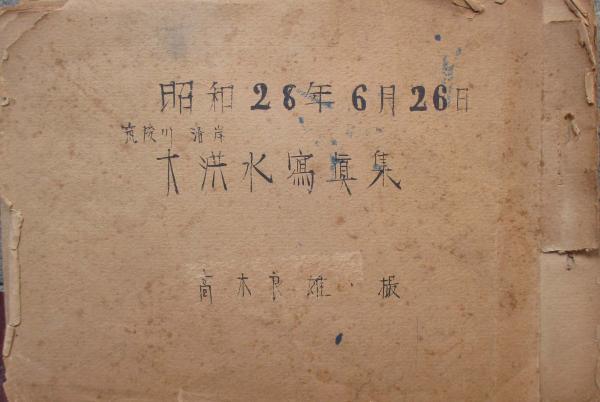 昭和28年6月26日
筑後川 沿岸
大洪水寫眞集
高木良雄・撮